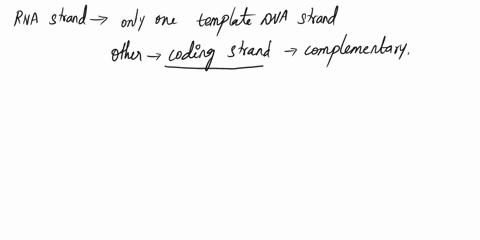 RNA strand → only one template DNA strand
Other → coding strand → complementary.